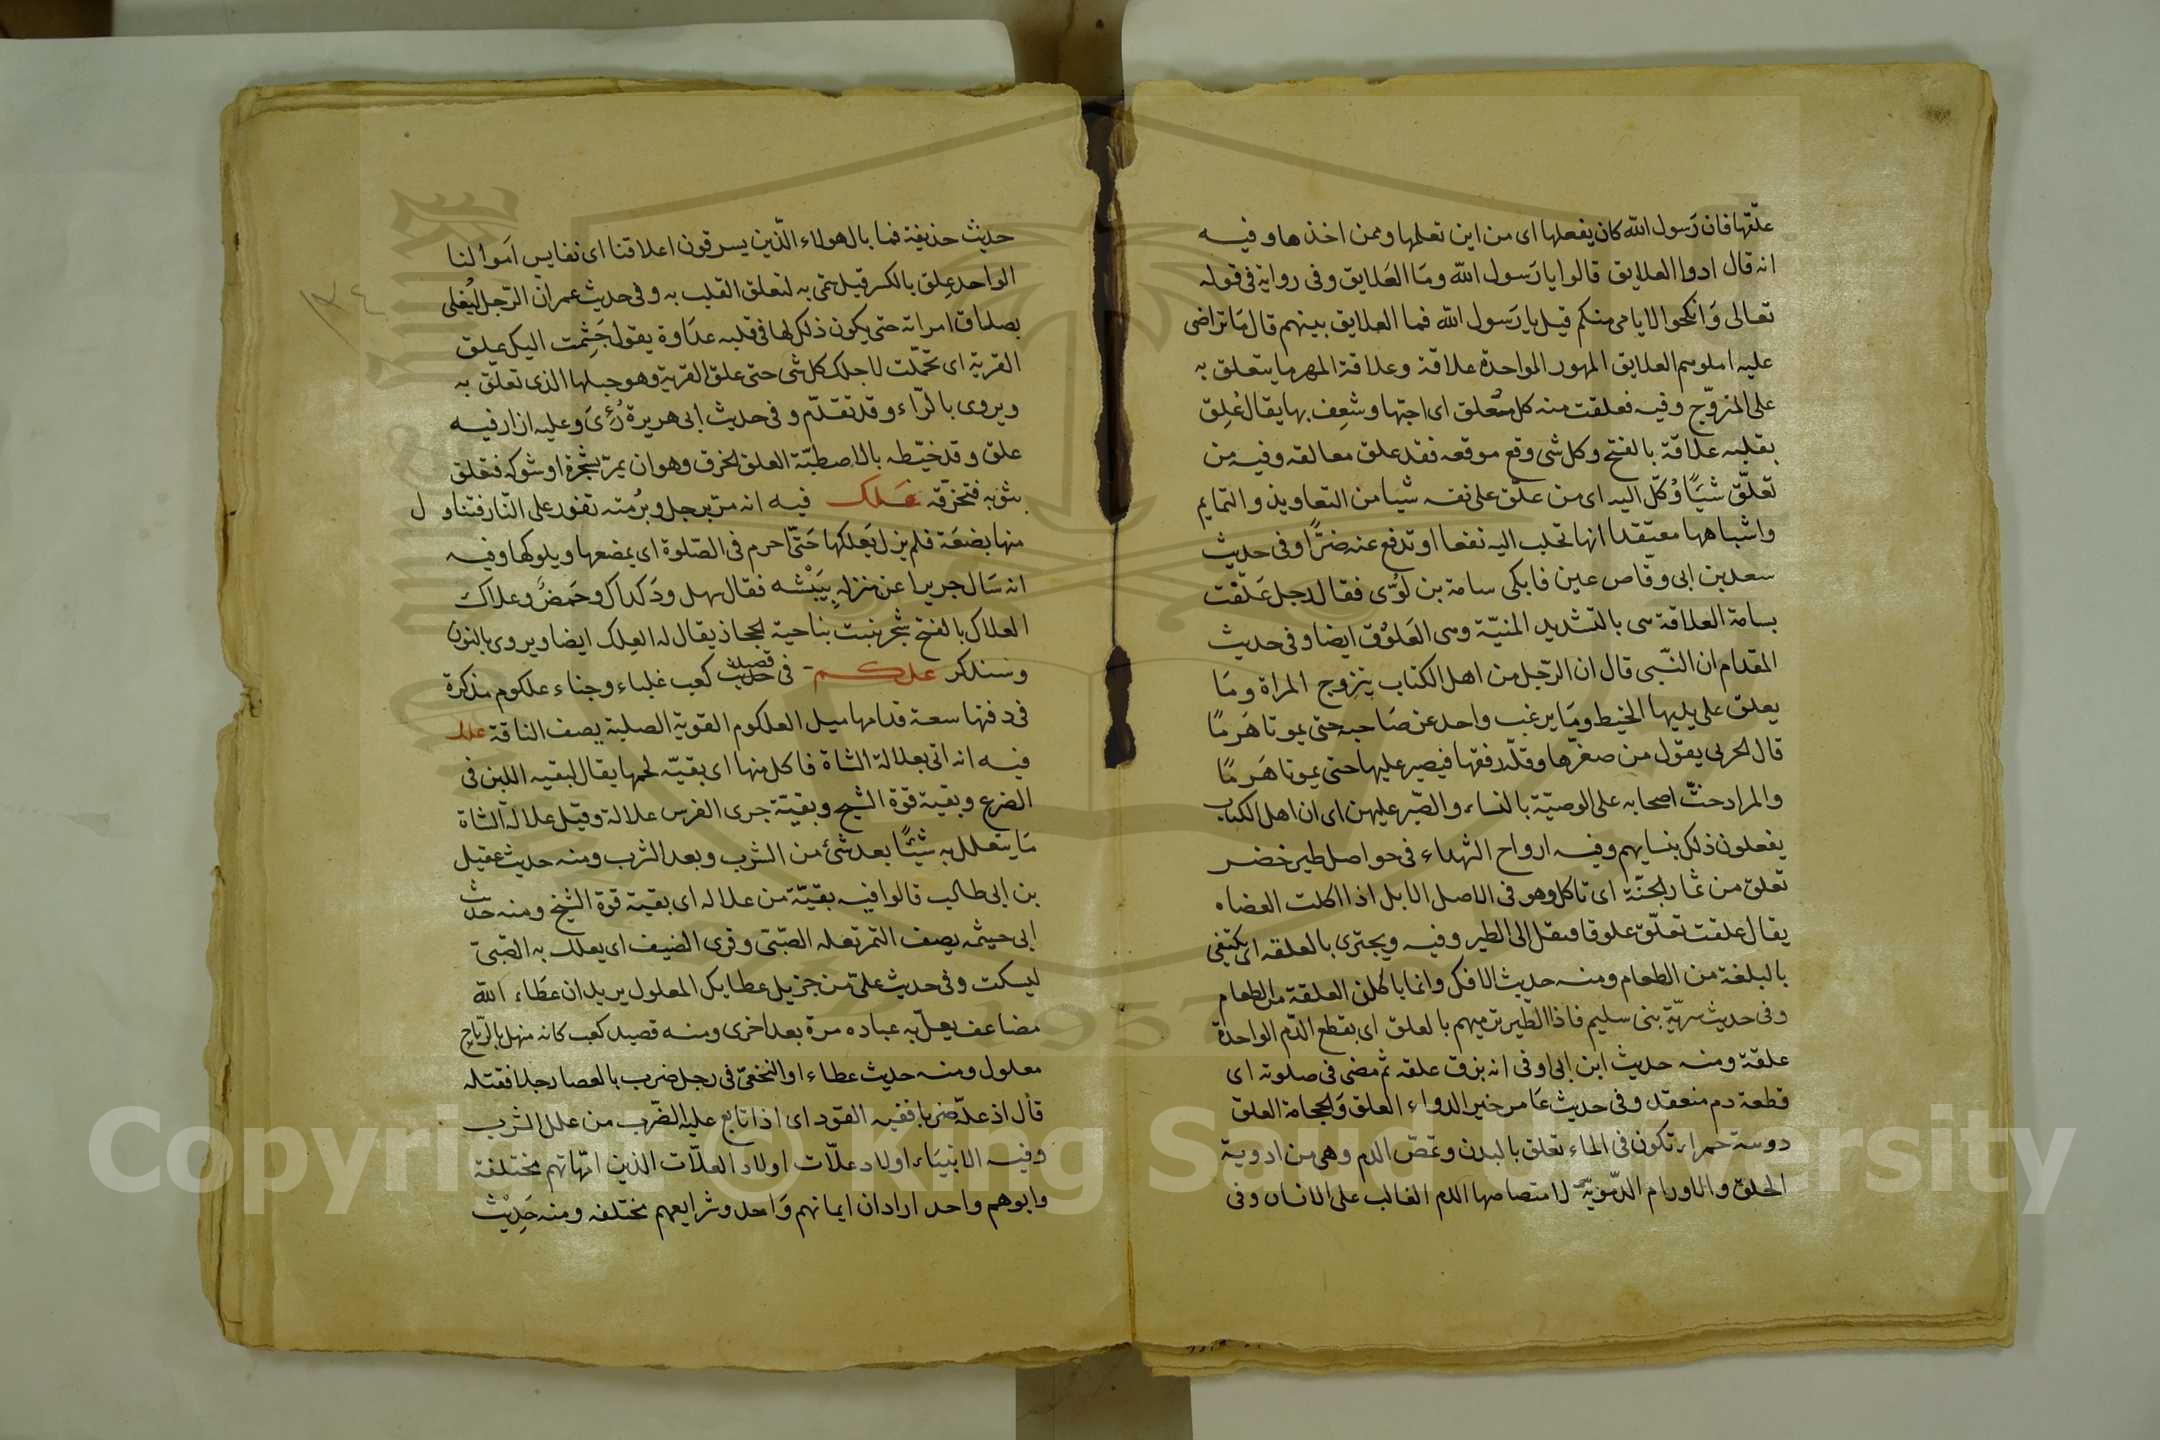 علّقها فان رَسول الله كان يفعلها اى من اين تعلمها وممن اخذها وفيه
انه قال ادوا العلايق قالوا يا رَسول الله ومَا العَلايق وفى رواية فى قوله
تعالى وَانكحوا الايامى منكم قيل يا رَسول الله فما العلايق بينهم قال مَا تراضى
عليه اهلوهم العلايق المهور الواحدة علاقة وعلاقة المهر ما يتعلق به
على المتزوّج وفيه فعلقت منه كل مُعلق اى احبّها وشعِف بها يقال عُلِق
بقلبه علاقة بالفتح وكل شى وقع موقعه فقد علق معالقه وفيه من
تعلّق شيًا وُكّل اليه اى من علّق على نفسه شيا من التعاويذ والتمايم
واشباهها معتقدا انها تجلب اليه نفعا او تدفع عنه ضرًّا وفى حديث
سعد بن ابى وقاص عين فابكى سامة بن لُوَّى فقال رجل عَلّقت
بسامة العلاقة هى بالتشديد المنيّة وهى العَلوُق ايضا وفى حديث
المقدام ان النّبى قال ان الرّجل من اهل الكتاب يتزوج المراة ومَا
يعلق على يديها الخيط ومَا يرغب واحد عن صَاحبه حتى يموتا هَرمًا
قال الحربى يقول من صغرها وقلّة رفقها فيصبر عليها حتى يموتا هَرمًا
والمراد حثّ اصحابه على الوصيّة بالنساء والصّبر عليهن اى ان اهل الكتاب
يفعلون ذلك بنسايهم وفيه ارواح الشهداء فى حواصل طير خضر
تعلق من ثمار الجنّة اى تاكل وهو فى الاصل الابل اذا اكلت العضاه
يقال علقت تعلّق علوقا فنقل الى الطير وفيه ويجتزى بالعلقه اى يكتفى
بالبلغة من الطعام ومنه حديث الافك وانما ياكلن العلقة من الطعام
وفى حديث سرّية بنى سليم فاذا الطير ترميهم بالعلق اى بقطع الدّم الواحدة
علقة ومنه حديث ابن ابى اوفى انه بزق علقه ثم مضى فى صلوته اى
قطعة دم منعقد وفى حديث عَامر خير الدواء العلق وَالحجامة العلق
دوسة حمراء تكون فى الماء تعلق بالبدن وتمصّ الدم وهى من ادوية
الحلق والاورام الدّمويّة لامتصاصها الدم الغالب على الانسان وفى
حديث حذيفة فما بال هولاء الّذين يسرقون اعلاقنا اى نفايس اَموالنا
الواحد عِلق بالكسر قيل سمّى به لتعلق القلب به وفى حديث عمران الرّجل ليُغلى
بصداق امراته حتى يكون ذلك لها فى قلبه عدَاوة يقول جَشِمت اليك علق
القربة اى تحمّلت لاجلك كل شى حتى علق القربة وهو حبلها الذى تعلّق به
ويروى بالرّاء وقد تقدّم وفى حديث ابى هريرة رُئىَ وعليه ازار فيه
علق وقد خيّطه بالاصطبّة العلق الخرق وهو ان يمرّ بشجرة او شوكه فتعلق
بثوبه فتخرّقه عَلك فيه انه مرّ برجل وبُرمته تفور على النّار فتناول
منها بضعَة فلم يزل يَعلكها حَتّى احرم فى الصّلوة اى يمضغها ويلوكها وفيه
انه سَال جريرا عن منزله بِبَيْشه فقال سهل ودَكداك وحَمضٌ وعلاك
العلاك بالفتح شجر ينبت بناحية الحجاز يقال له العِلك ايضا ويروى بالنون
وسنذكر علكم فى قصيد حديث كعب غلباء وجناء علكوم مذكرة
فى دفتها سعة قدامها ميل العلكوم القوية الصلبة يصف الناقة علل
فيه انه اتى بعلالة الشاة فاكل منها اى بقيّه لحمها يقال لبقيه اللبن فى
الضرع وبقية قوّة الشيخ وبقيّة جرى الفرس علالة وقيل علالة الشاة
مَا يتعلل به شيْئًا بعد شئ من الشرب وبعد الشرب ومنه حديث عقيل
بن ابى طالب قالوا فيه بقيّة من علاله اى بقية قوة الشيخ ومنه حديث
ابى حيثمه يصف التمر تعله الصّبّى وقرى الضيف اى يعلك به الصّبىّ
ليسكت وفى حديث علىّ من جزيل عطايك المعلول يريد ان عطَاء الله
مضاعف يعلّ به عباده مرة بعد اخرى ومنه قصيد كعب كانه منهل بالرّاح
معلول ومنه حديث عطاء او النخعىّ فى رجل ضرب بالعصا رجلا فقتله
قال اذ علّه ضربا ففيه القود اى اذا تابع عليه الضّرب من علل الشرب
وفيه الانبيَاء اولاد علّات اولاد العلّات الذين امّهاتهم مختلفة
وابوهم واحد اراد ان ايمانهم وَاحد وشرايعهم مختلفه ومنه حَدِيْث
Copyright © King Saud University